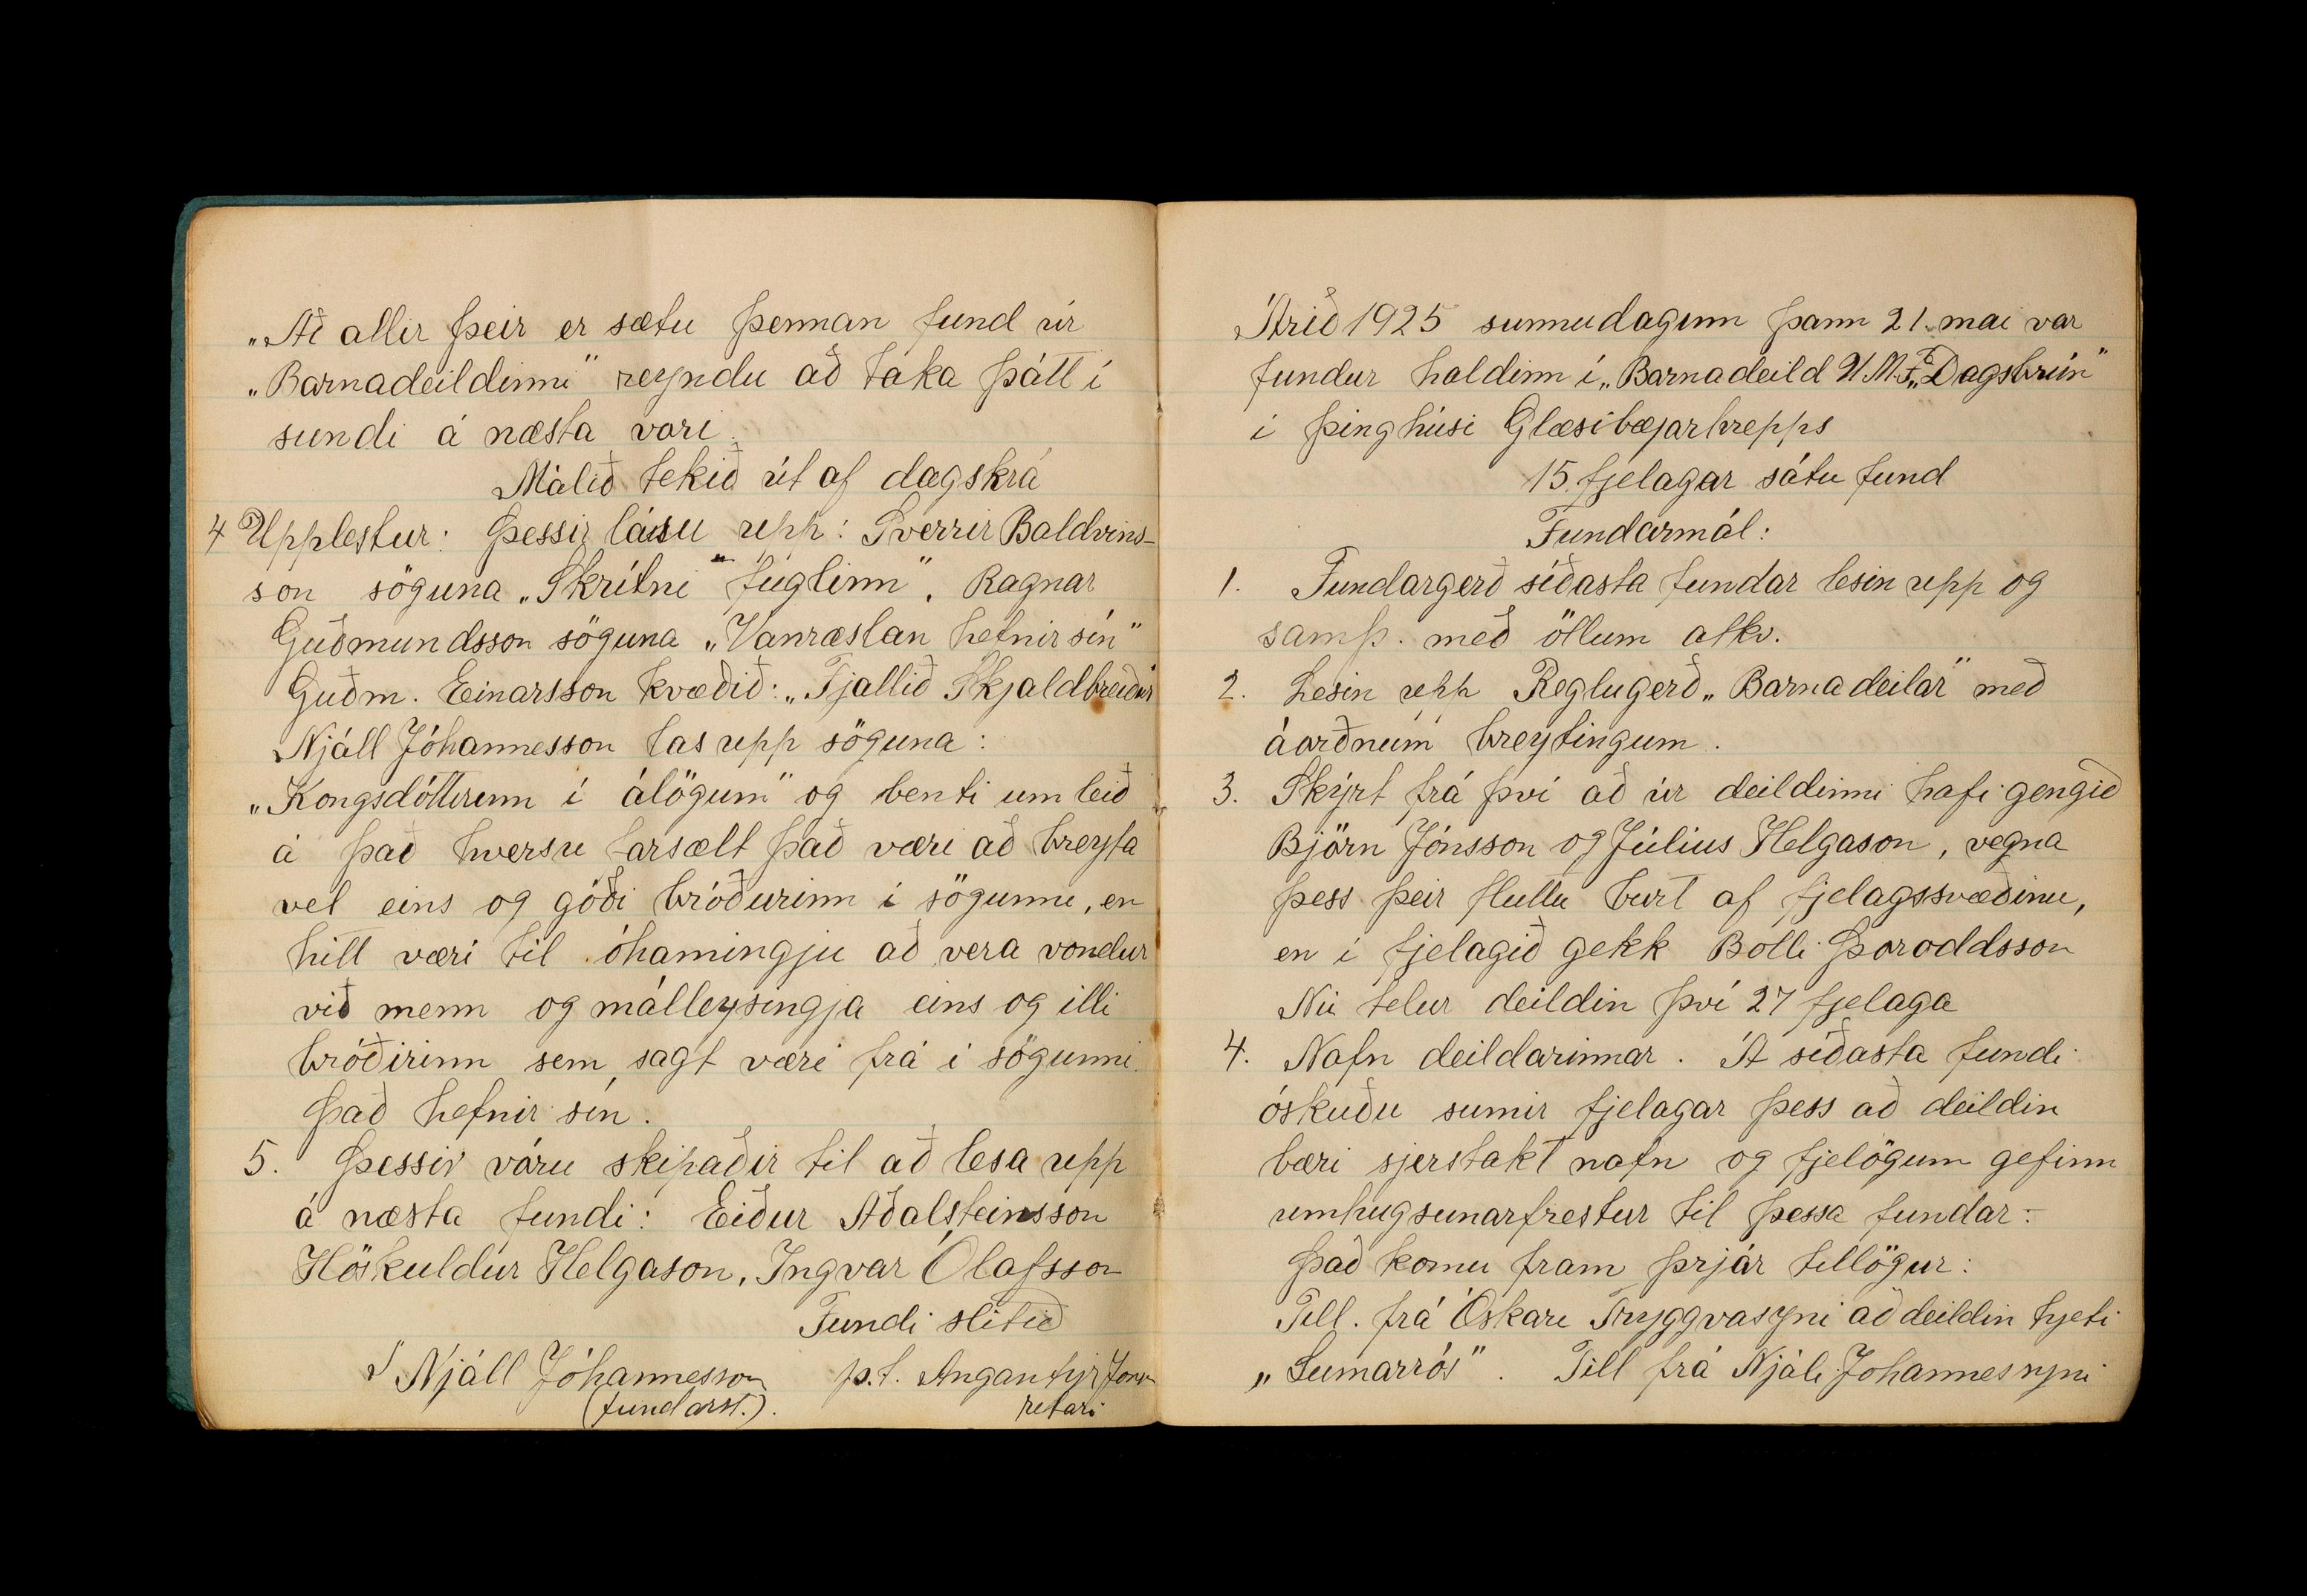 „Að allir þeir er sætu þennan fund úr
„Barnadeildinni" reyndu að taka þátt í
sundi á næsta vori.
Málið tekið út af dagskrá
4 Upplestur: Þessir lásu upp: Sverrir Baldvins-
son söguna „Skrítni fuglinn". Ragnar
Guðmundsson söguna „Vanræslan hefnir sín"
Guðm. Einarsson kvæðið: „Fjallið Skjaldbreiður
Njáll Jóhannesson las upp söguna:
„Kongsdóttirenn í álögum" og benti um leið
á það hversu farsælt það væri að breyta
vel eins og góði bróðurinn í sögunni, en
hitt væri til óhamingju að vera vondur
við menn og málleysingja eins og illi
bróðirinn sem sagt væri frá í sögunni.
Það hefnir sín.
5. Þessir váru skipaðir til að lesa upp
á næsta fundi: Eiður Aðalsteinsson
Höskuldur Helgason, Ingvar Ólafsson
Fundi slitið
Njáll Jóhannesson p.t. Angantýr Jónsson
(fundarst.). ritari
Árið 1925 sunnudaginn þann 21. mai var
fundur haldinn í „Barnadeild U.M.F. „Dagsbrún"
í þinghúsi Glæsibæjarhrepps
15 fjelagar sátu fund
Fundarmál:
1. Fundargerð síðasta fundar lesin upp og
samþ. með öllum atkv.
2. Lesin upp Reglugerð „Barnadeilar" með
áorðnum breytingum.
3. Skýrt frá því að úr deildinni hafi gengið
Björn Jónsson og Júlíus Helgason, vegna
þess þeir fluttu burt af fjelagssvæðinu,
en í fjelagið gekk Bolli Þoroddsson
Nú telur deildin því 27 fjelaga
4. Nafn deildarinnar. Á síðasta fundi
óskuðu sumir fjelagar þess að deildin
bæri sjerstakt nafn og fjelögum gefinn
umhugsunarfrestur til þessa fundar:-
Það komu fram þrjár tillögur:
Till. frá Óskari Tryggvasyni að deildin hjeti
„Sumarrós". Till frá Njáli Johannesnyni